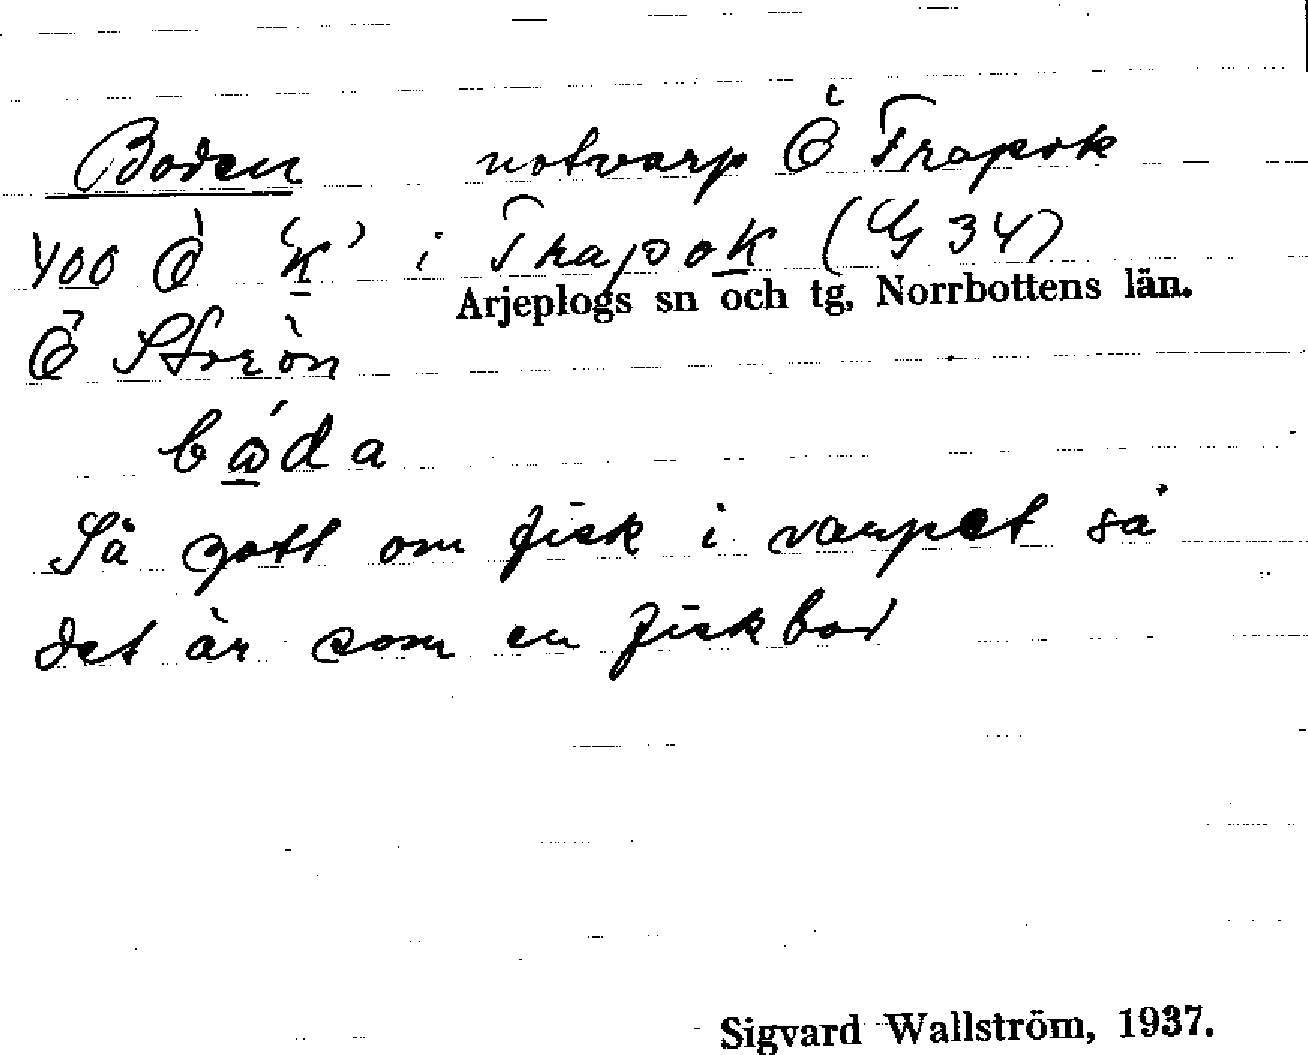 Boden notvarp Ö Trapok
400 Ö 'k' i Trapok (G 34)
Arjeplogs sn och tg, Norrbottens län.
Ö Storön
båda
Så gott om fisk i varpet så
det är som en fiskbod
Sigvard Wallström, 1937.